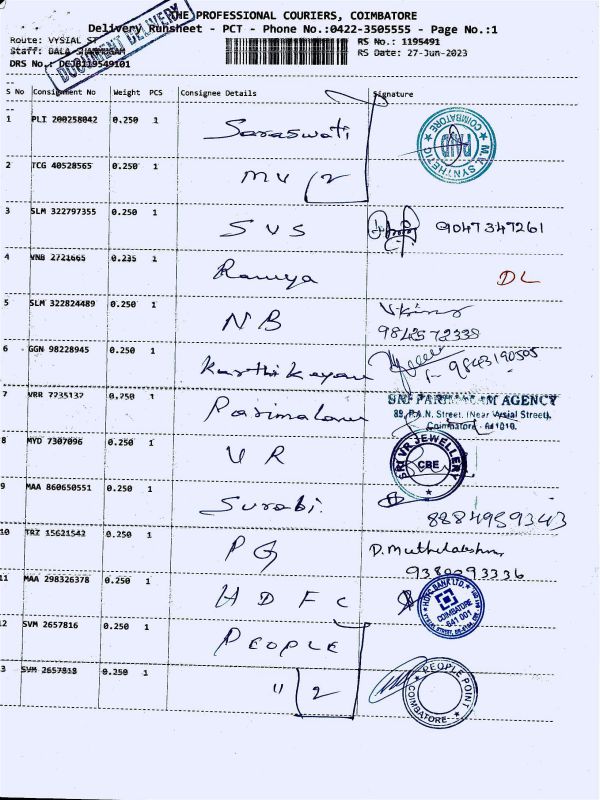 THE PROFESSIONAL COURIERS, COIMBATORE
Delivery Runsheet - PCT - Phone No.:0422-3505555 - Page No.:1
DOCUMENT DELIVERY
Route: VYSIAL ST
RS No.: 1195491
Staff: BALA
RS Date: 27-Jun-2023
DRS No.: DCJB119549101
S No Consignment No Weight PCS Consignee Details Signature
1 PLI 200258042 0.250 1 Saraswati
M.V. SYNTHETIC COIMBATORE PAID
2 TCG 40528565 0.250 1 MV 2
3 SLM 322797355 0.250 1 SVS 9047347261
4 VNB 2721665 0.235 1 Ramya DL
5 SLM 322824489 0.250 1 NB
9843572338
6 GGN 98228945 0.250 1 Karthikeyan 9843190505
7 VRR 7235137 0.250 1
SRI AGENCY
89, P.A.N. Street, (Near Vysial Street),
Coimbatore - 641010.
8 MYD 7307096 0.250 1 VR
SRI VR JEWELLERY CBE
9 MAA 860650551 0.250 1 Surabi.
10 TRZ 15621542 0.250 1 PG
9380093336
11 MAA 298326378 0.250 1 HDFC
HDFC BANK LTD. COIMBATORE -641 001
12 SVM 2657816 0.250 1 PEOPLE
3 SVM 2657818 0.250 1 " 2
PEOPLE POINT COIMBATORE